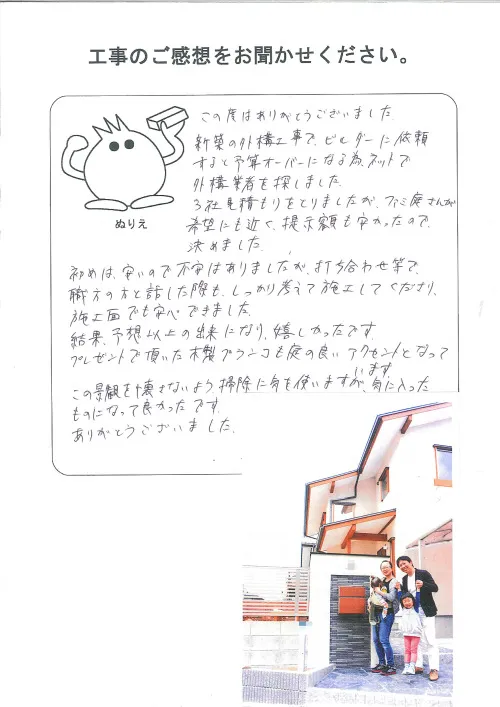 工事のご感想をお聞かせください。
この度はありがとうございました。
新築の外構工事で、ビルダーに依頼
すると予算オーバーになる為、ネットで
外構業者を探しました。
3社見積もりをとりましたが、ファミ庭さんが
希望にも近く、提示額も安かったので、
決めました。
ぬりえ
初めは、安いので不安はありましたが、打ち合わせ等で、
職方の方と話した際も、しっかり考えて施工してくださり、
施工面でも安心できました。
結果、予想以上の出来になり、嬉しかったです。
プレゼントで頂いた木製プランコも庭の良いアクセントとなって
います。
この景観を壊さないよう、掃除に気を使いますが、気に入った
ものになって良かったです。
ありがとうございました。